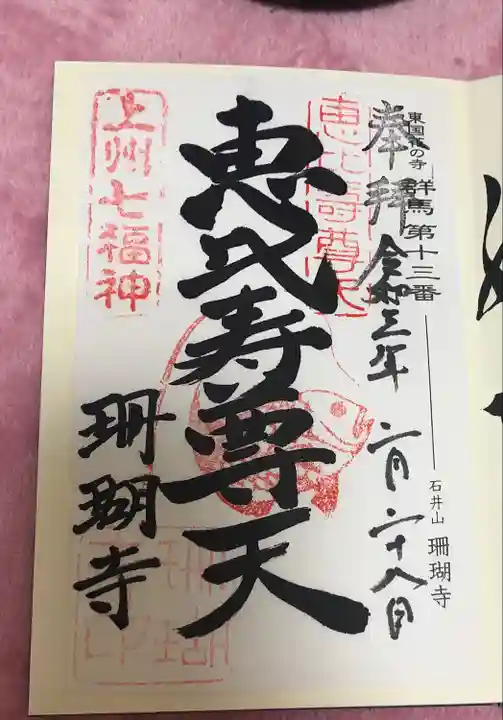 東国花の寺
群馬第十三番
石井山 珊瑚寺
奉拝
令和三年 二月二十八日
恵比寿尊天
恵比寿尊天
上州七福神
珊瑚寺